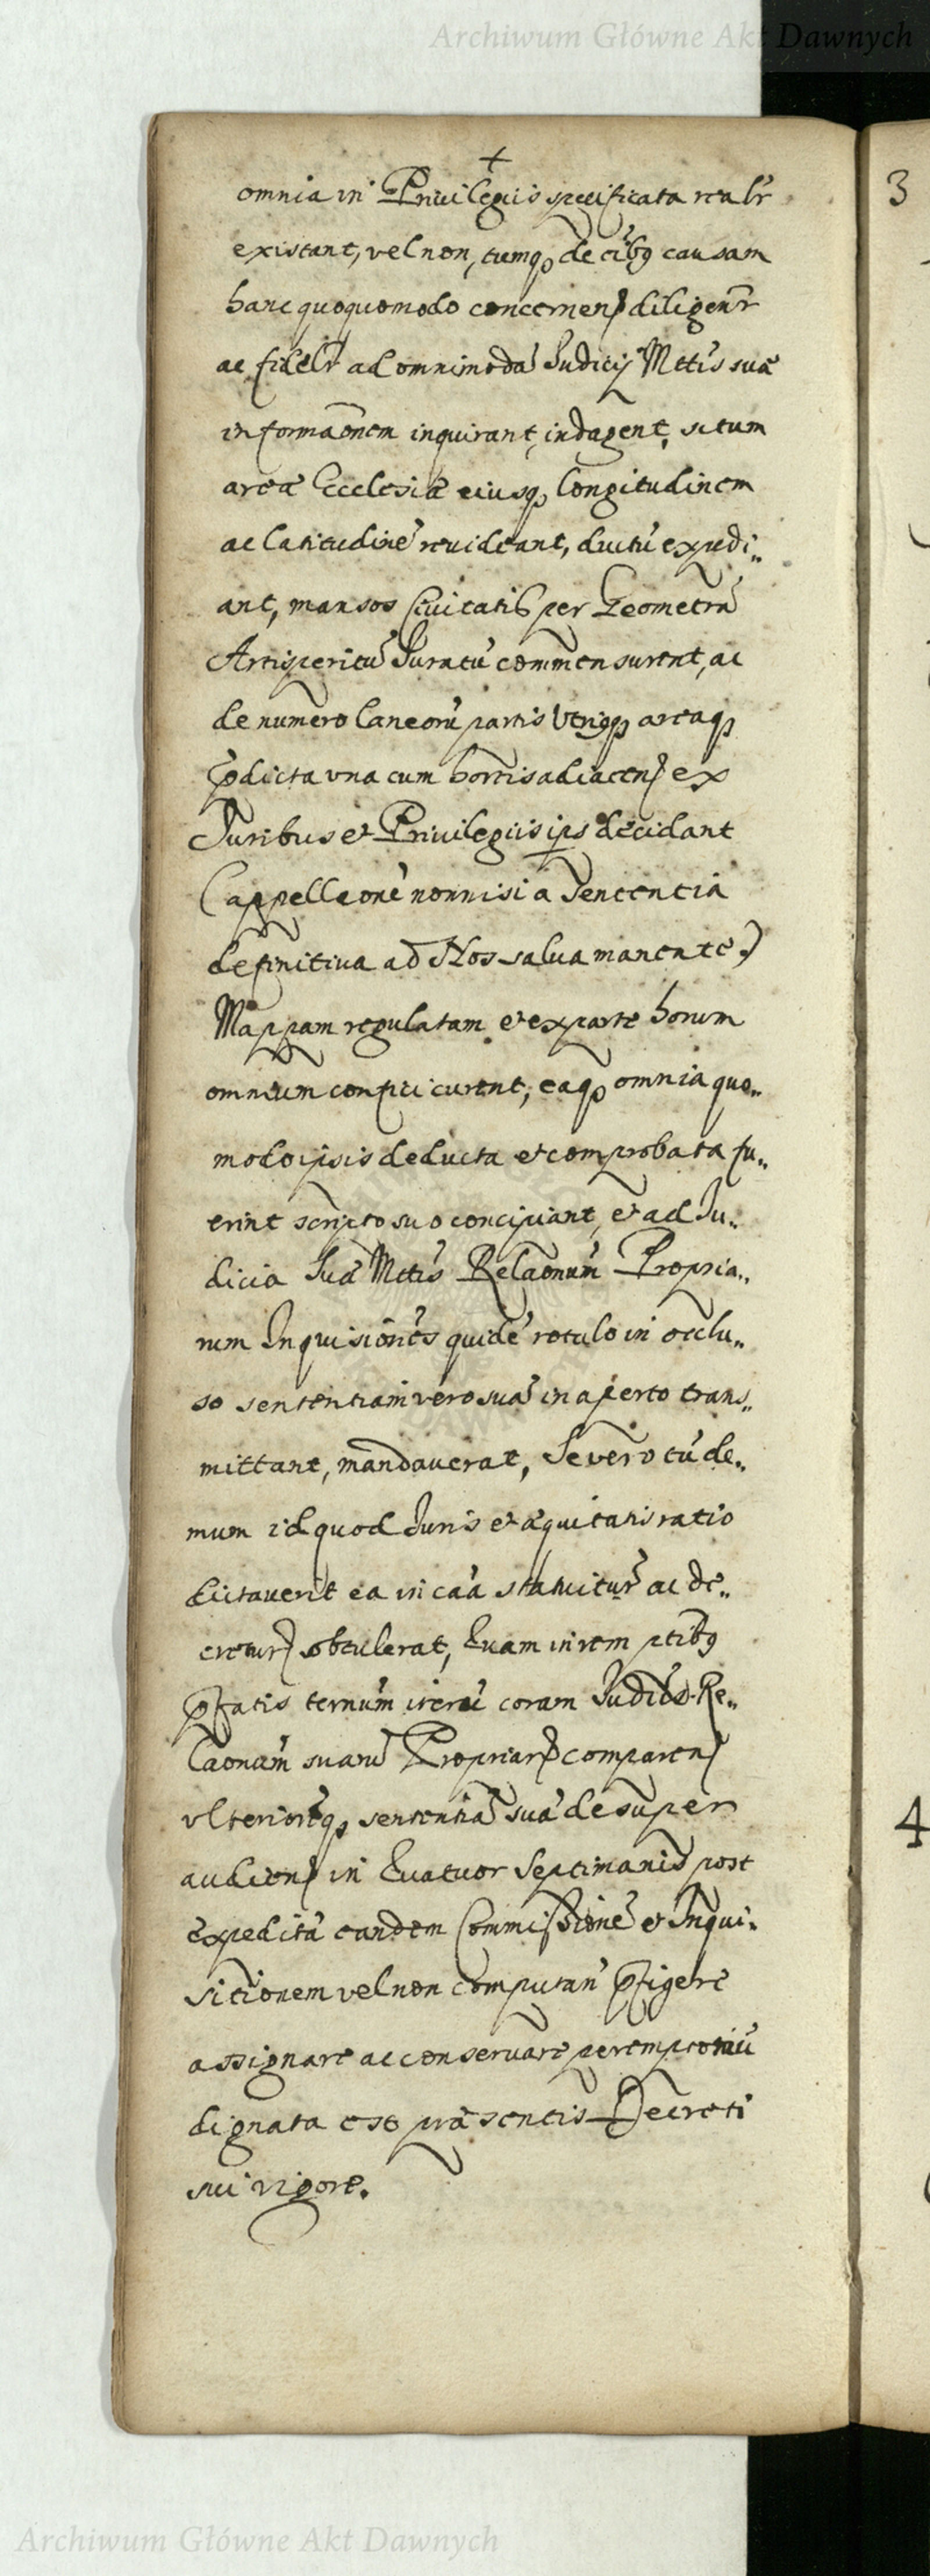 Archiwum Główne Akt Dawnych
+
omnia in Privilegiis specificata realr
existant, vel non, tumq de oibg causam
hanc quoquomodo concernen diligentr
ac fidelr ad omnimoda Judicij Mttis suæ
informaonem inquirant, indagent, situm
areæ Ecclesiæ eiusq longitudinem
ac latitudine revideant, ductu expedi„
ant, mansos Civitatis per Geometra
Artis peritu Juratu commensurent, ac
de numero laneoru partis utriqq areaq
pdicta una cum hortis adiacen ex
Juribus et Privilegiis ips decidant
(appelleone nonnisi a Sententia
definitiva ad Nos salva manente)
Mappam regulatam et ex parte horum
omnium confici curent, eaq omnia quo„
modo ipsis deducta et comprobata fu„
erint scripto suo concipiant, et ad Ju„
dicia Suæ Mttis Relaonum Propria„
rum Inquisiones quide rotulo in occlu„
so sententiam vero sua in aperto trans„
mittant, mandaverat, Se vero tu de„
mum id quod Juris et æquitatis ratio
dictaverit ea in caa statuitur ac de„
cretur obtulerat, Quam in rem ptibg
pfatis ternum coram Judicÿs Re„
laonum suaru Propriar comparen
ulterioreq sententia sua desuper
audien in Quatuor Septimanis post
expedita eandem Commissione et Inqui„
sitionem vel non computan pfigere
assignare ac conservare peremptoriu
dignata est præsentis Decreti
sui vigore.
3
4
Archiwum Główne Akt Dawnych